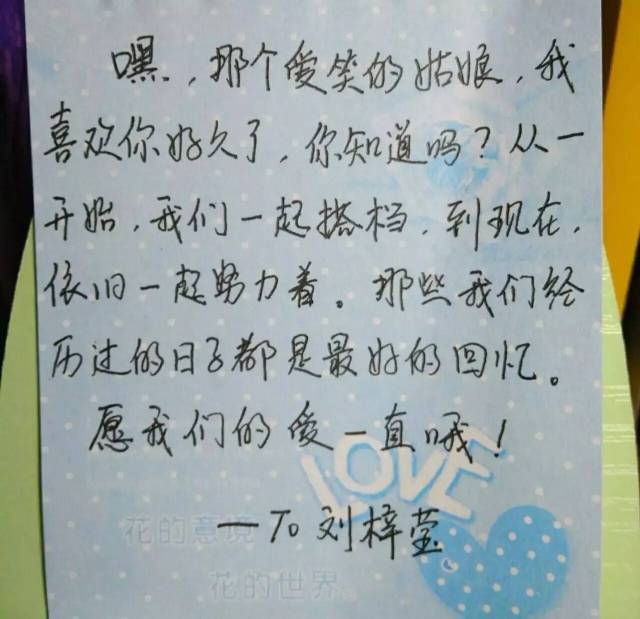 嘿，那个爱笑的姑娘，我
喜欢你好久了，你知道吗？从一
开始，我们一起搭档，到现在，
依旧一起努力着。那些我们经
历过的日子都是最好的回忆。
愿我们的爱一直哦！
LOVE
—To 刘梓莹
花的意境
花的世界